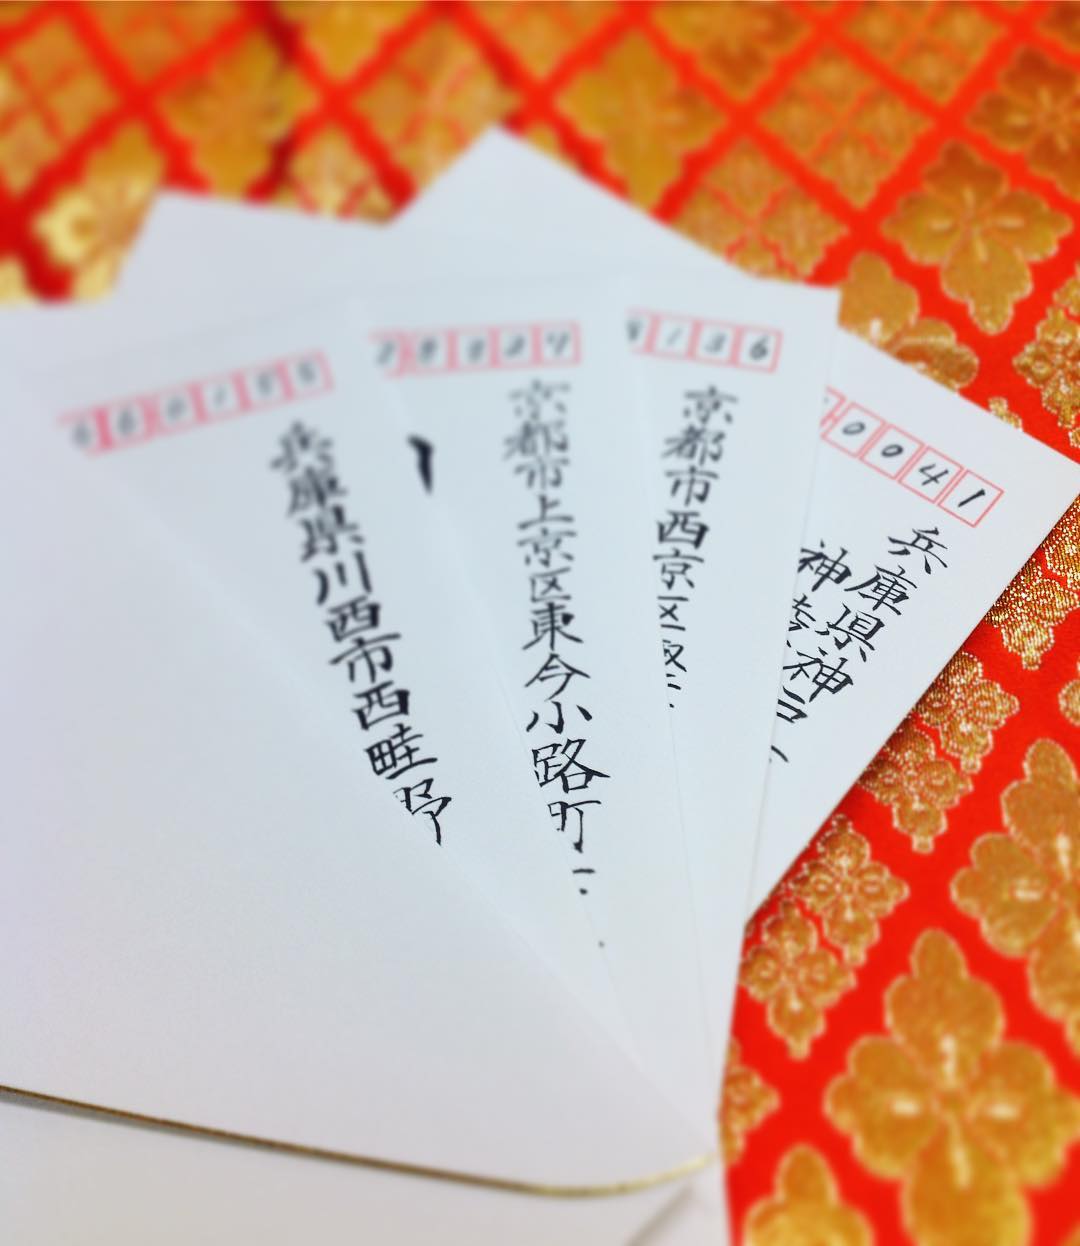 兵庫県川西市西畦野
京都市上京区東今小路町
京都市西京区
136
0041
兵庫県神戸
神